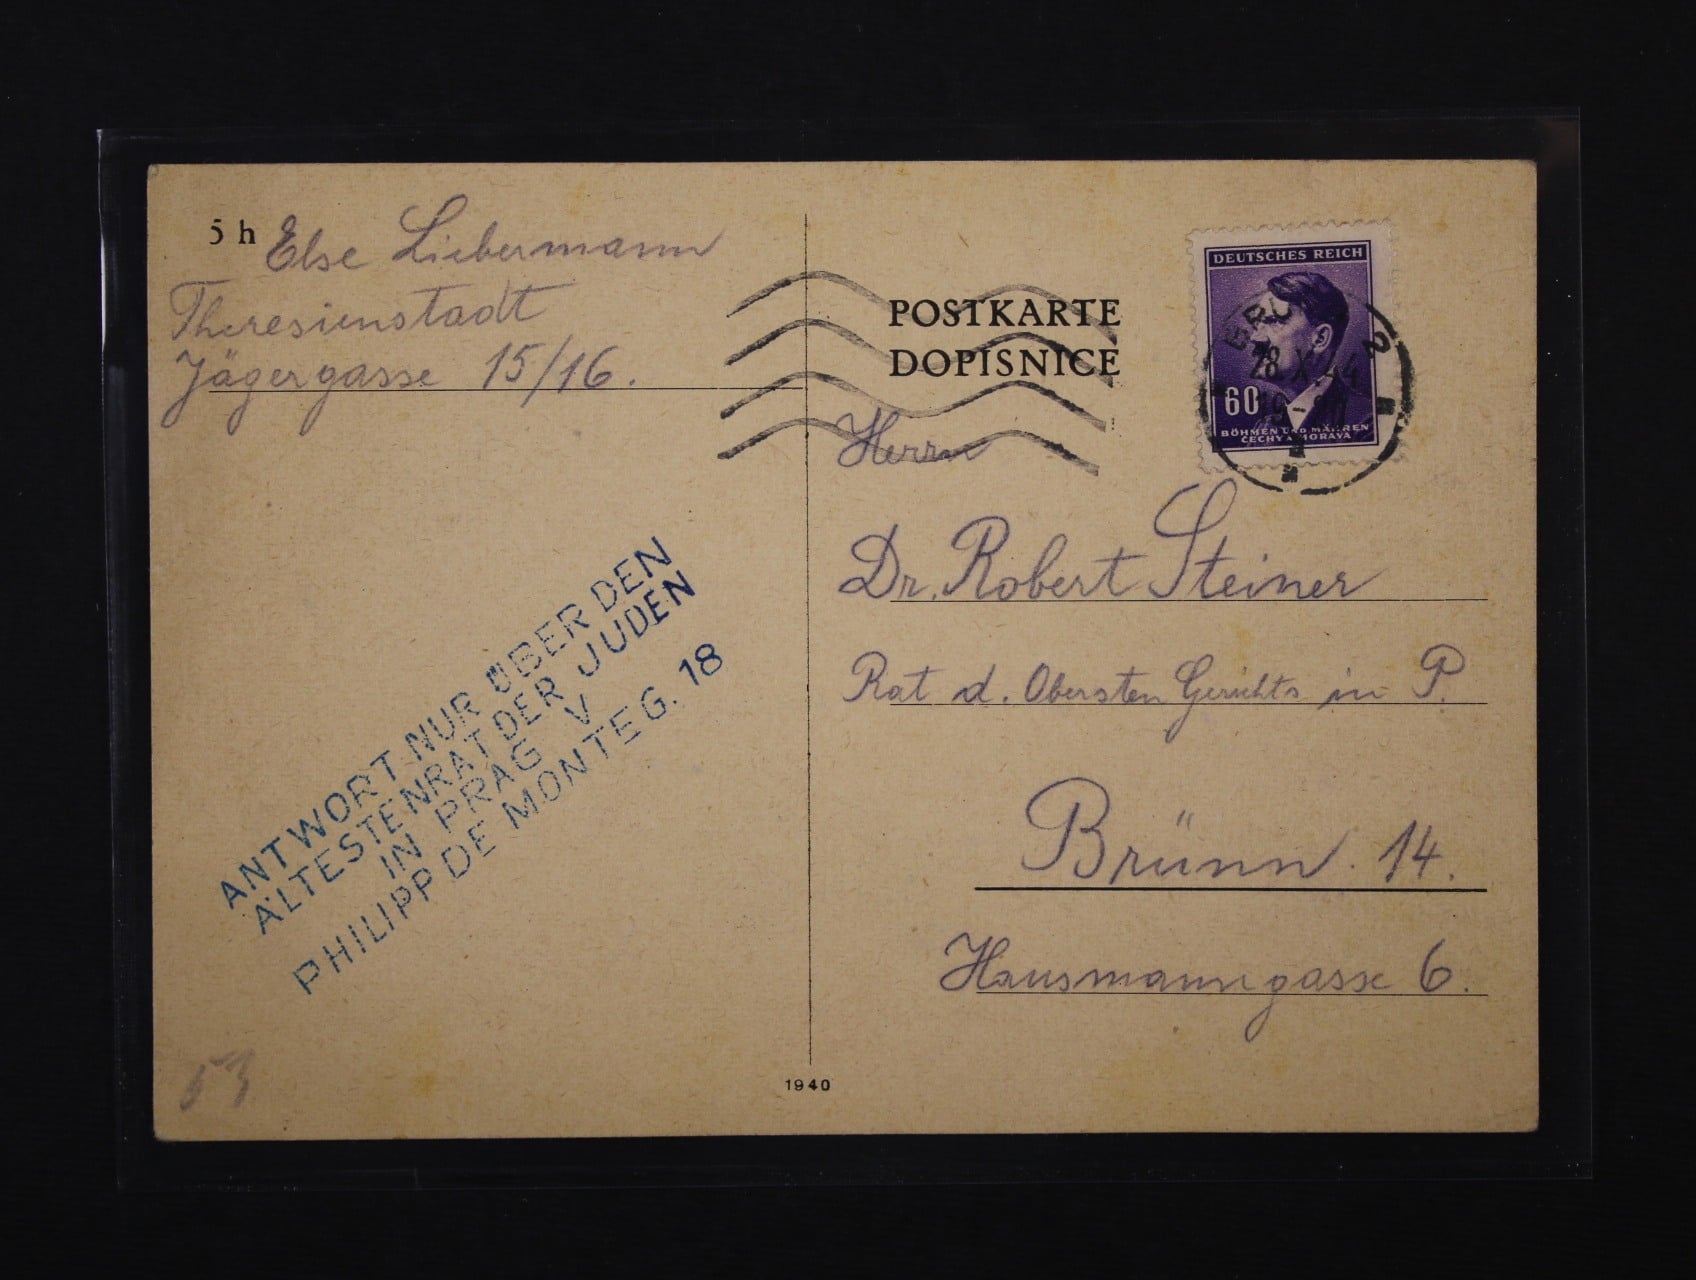 5 h Else Liebermann
Theresienstadt
Jägergasse 15/16.
POSTKARTE
DOPISNICE
DEUTSCHES REICH
60
BÖHMEN UND MÄHREN
ČECHY A MORAVA
28.X.44
2
Herrn
Dr. Robert Steiner
Rat d. Obersten Gerichts in P.
Brünn. 14.
Hausmanngasse 6.
ANTWORT NUR ÜBER DEN
ÄLTESTENRAT DER JUDEN
IN PRAG V
PHILIPP DE MONTE G. 18
53
1940